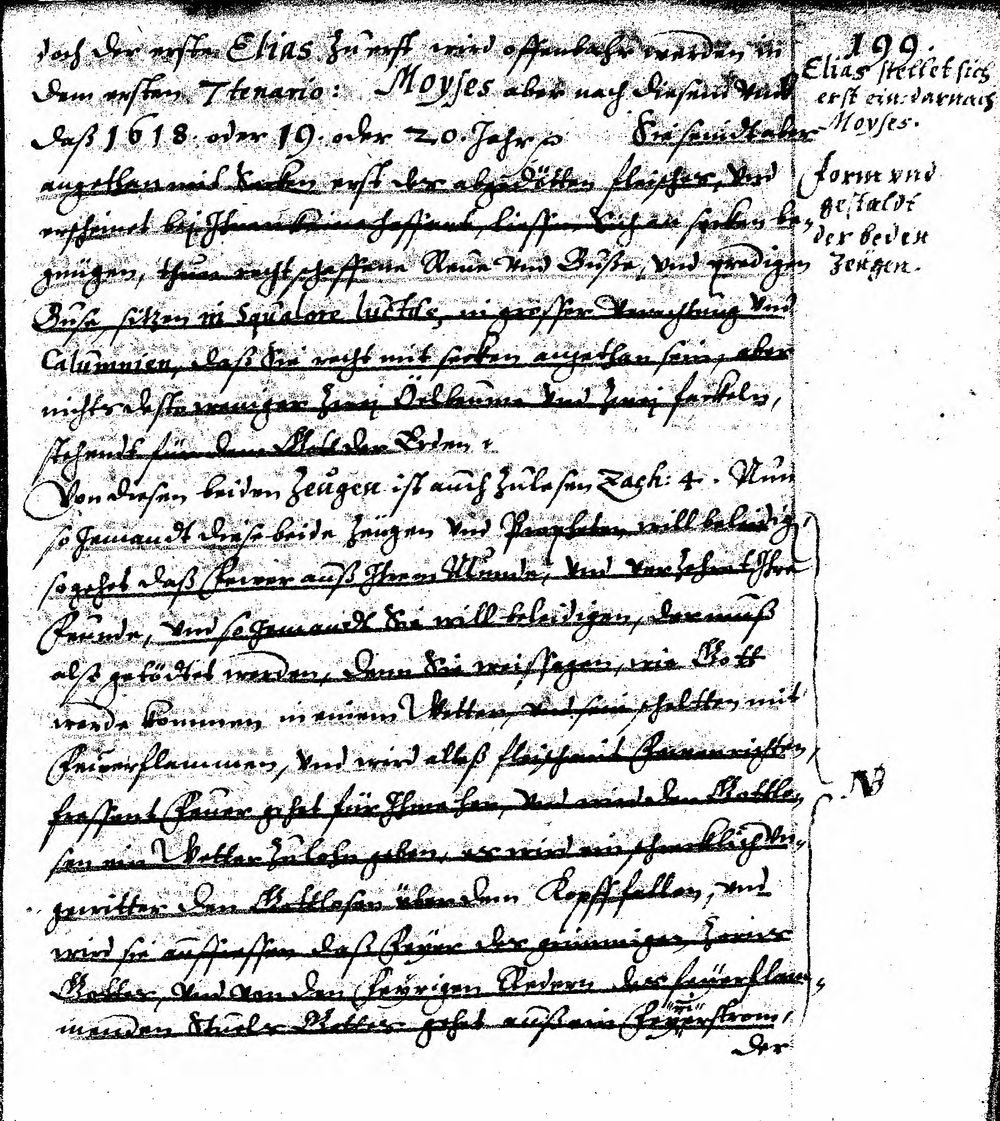 doch der erste Elias zu erst wird offenbahr werden in
dem ersten 7tenario: Moyses aber nach diesem vmb
daß 1618. oder 19. oder 20. Jahr
Sie seindt aber
angethan mit Secken erst der abgedötten fleisches, vnd
erscheinet bej Ihnen keine hoffart, liessen Sich an secken be„
gnügen, thuen rechtschaffene Reue vnd Busse, vnd predigen
Buse, sitzen in Squalore luctus, in grosser verachtung vnd
Calumnien, daß Sie recht mit secken angethan sein, aber
nichts desto weniger zwej Öelbeume vnd zwej fackeln,
stehendt für dem Gott der Erden.
Von diesen beiden Zeugen ist auch zu lesen Zach: 4. Nun
so Jemandt diese beide zeugen vnd Propheten will beleidig,
so gehet daß Feuer auß Ihrem Munde, vnd verzehret Ihre
Feinde, vnd so Jemandt Sie will beleidigen, der muß
alß getödtet werden, denn Sie weissagen, wie Gott
werde kommen in einem Wetter, vnd sein schelten mit
Feuerflammen, vnd wird alleß fleisch mit Feuer richten,
fressent Feuer gehet für Ihme her, vnd wird den Gottlo„
sen ein Wetter zu lohn geben, es wird ein schrecklich Vn„
gewitter den Gottlosen über dem Kopff fallen, vnd
wird sie auffressen daß Feyer des grimmigen Zorns
Gottes, vnd von den Feyrigen Redern des feuerflam„
menden Stuels Gottes gehet auß ein Feyerstrom,
der
199.
Elias stellet sich
erst ein: darnach
Moyses.
form vnd
gestaldt
der beden
Zeugen.
NB